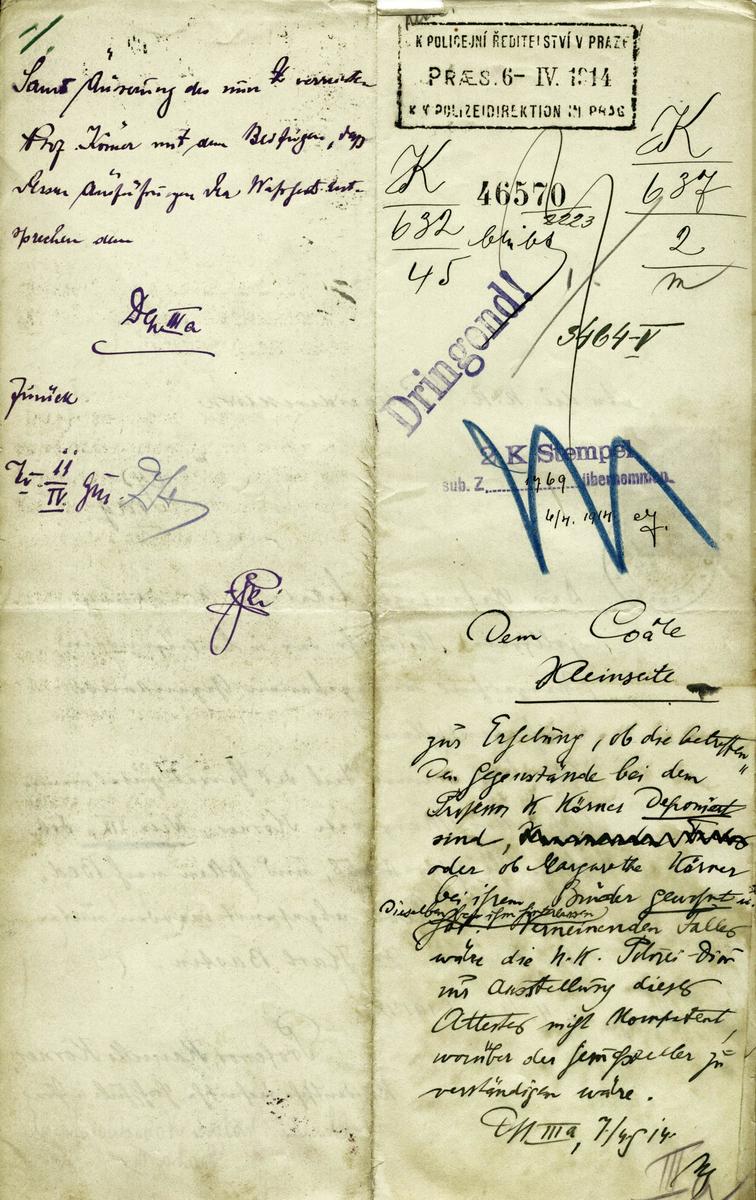 1/
Samt Äusserung des nun
Prof. Körner mit dem Beifügen, dass
dessen Ausführungen der Wahrheit ent-
sprechen dem
Dep. IIIa
Zurück
11
IV.
K POLICEJNÍ ŘEDITELSTVÍ V PRAZE
PRÆS. 6- IV. 1914
K K POLIZEIDIREKTION IN PRAG
K
632
45
46570
2223
bleibt
K
637
2
m
Dringend!
3464-V
2 K Stempel
sub. Z. 1769 übernommen
6/4. 1914
Dem Coäte
Kleinseite
zur Erhebung, ob die betreffen„
den Gegenstände bei dem
Professor K Körner deponiert
sind,
oder ob Margarethe Körner
bei ihrem Bruder gewohnt u.
Dieselben bei ihm hinterlassen
verneinenden Falles
wäre die k.k. Polizei-Dion
zur Ausstellung dieses
Attestes nicht kompetent,
worüber der Gesuchsteller zu
verständigen wäre.
Dep IIIa, 7/4 14